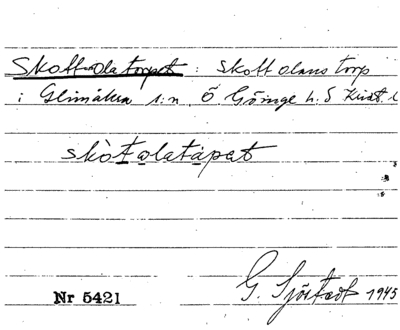 Skott-olatorpet : Skott olans torp
i Glimåkra s:n Ö Göinge h. S Krist. l
skòtolatåpat
G. Sjöstedt 1945
Nr 5421